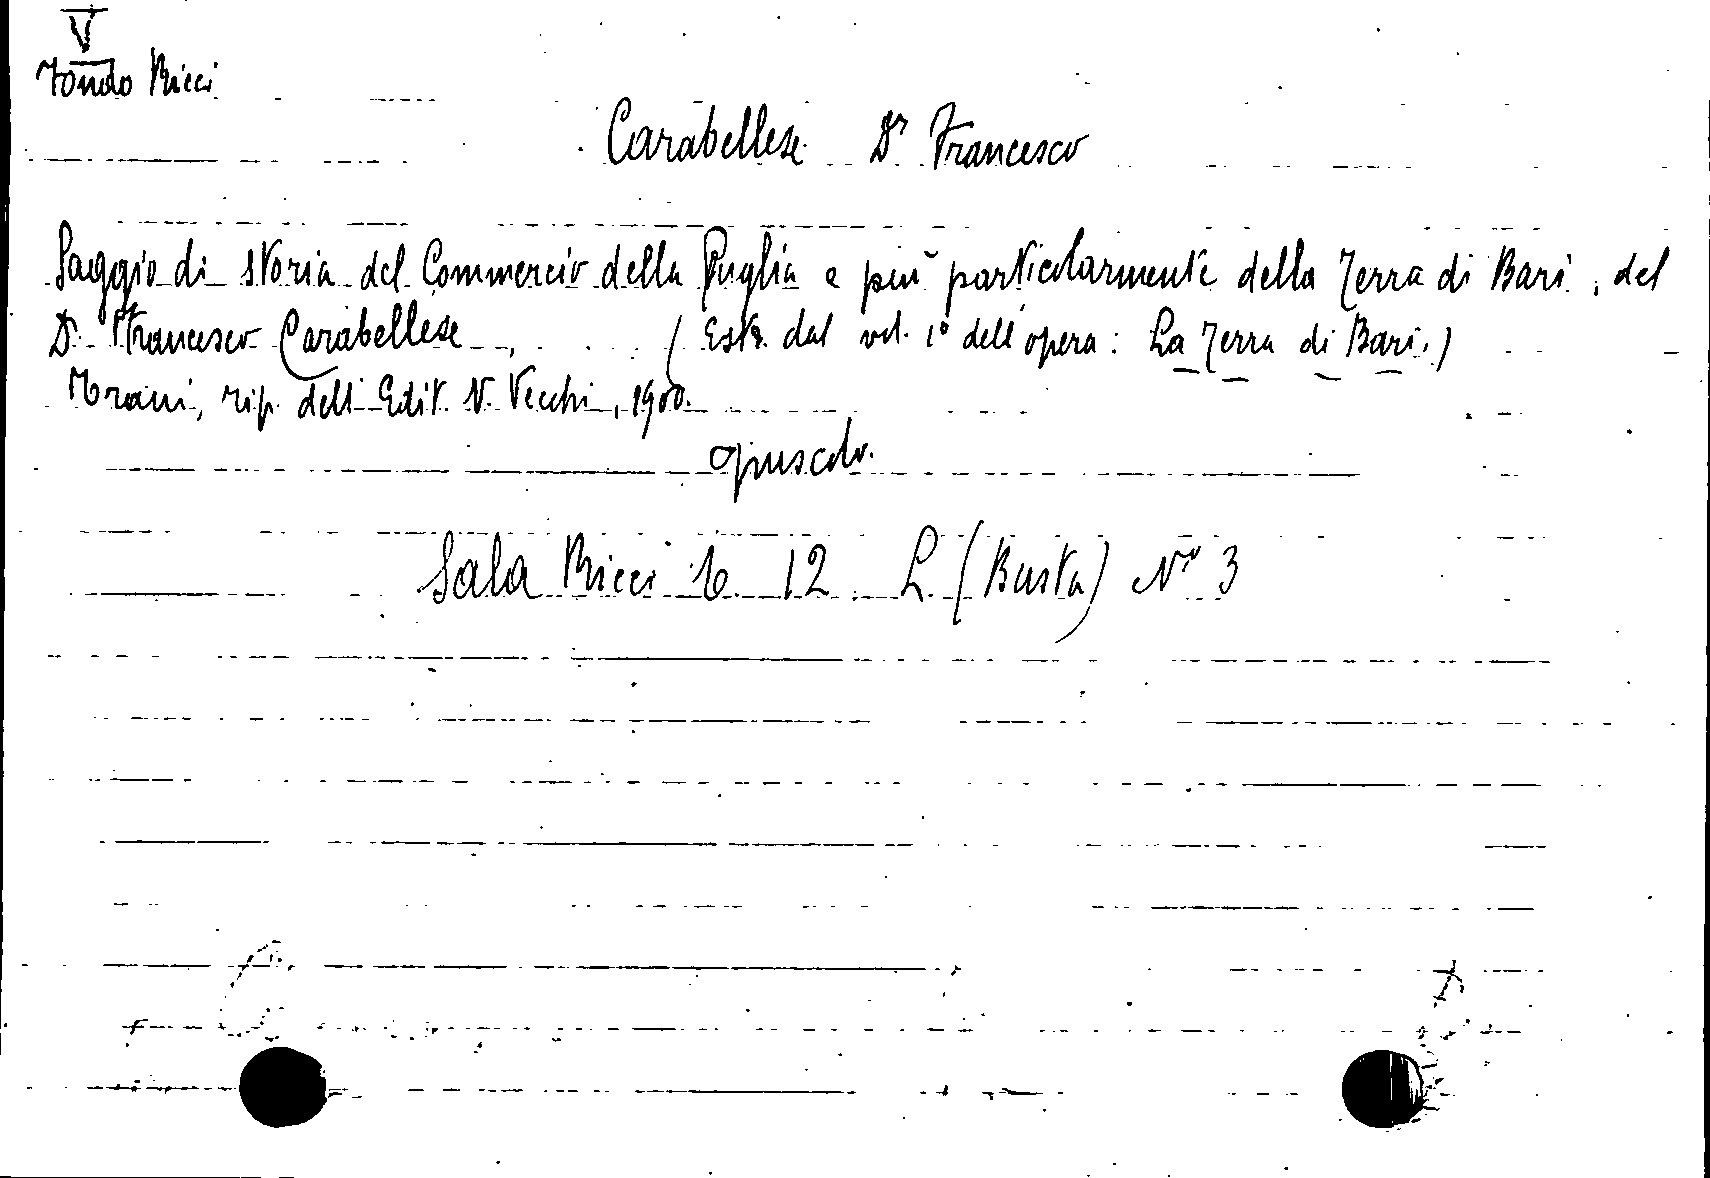 V
Fondo Ricci
Carabellese Dr Francesco
Saggio di storia del Commercio della Puglia e più particolarmente della Terra di Bari, del
D. Francesco Carabellese (Estr. dal vol. 1° dell'opera: La Terra di Bari.)
Trani, tip. dell'Edit. V. Vecchi, 1900.
opuscolo.
Sala Ricci 16 12 L (Busta) N° 3